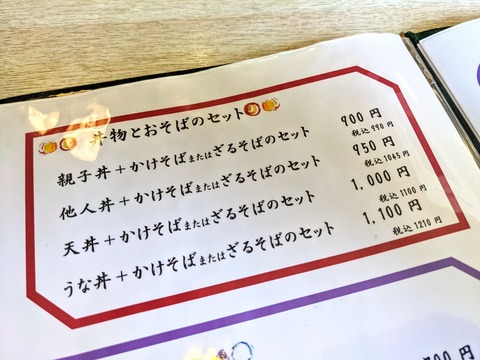 丼物とおそばのセット
親子丼＋かけそばまたはざるそばのセット 900円
税込990円
他人丼＋かけそばまたはざるそばのセット 950円
税込1045円
天丼＋かけそばまたはざるそばのセット 1,000円
税込1100円
うな丼＋かけそばまたはざるそばのセット 1,100円
税込1210円